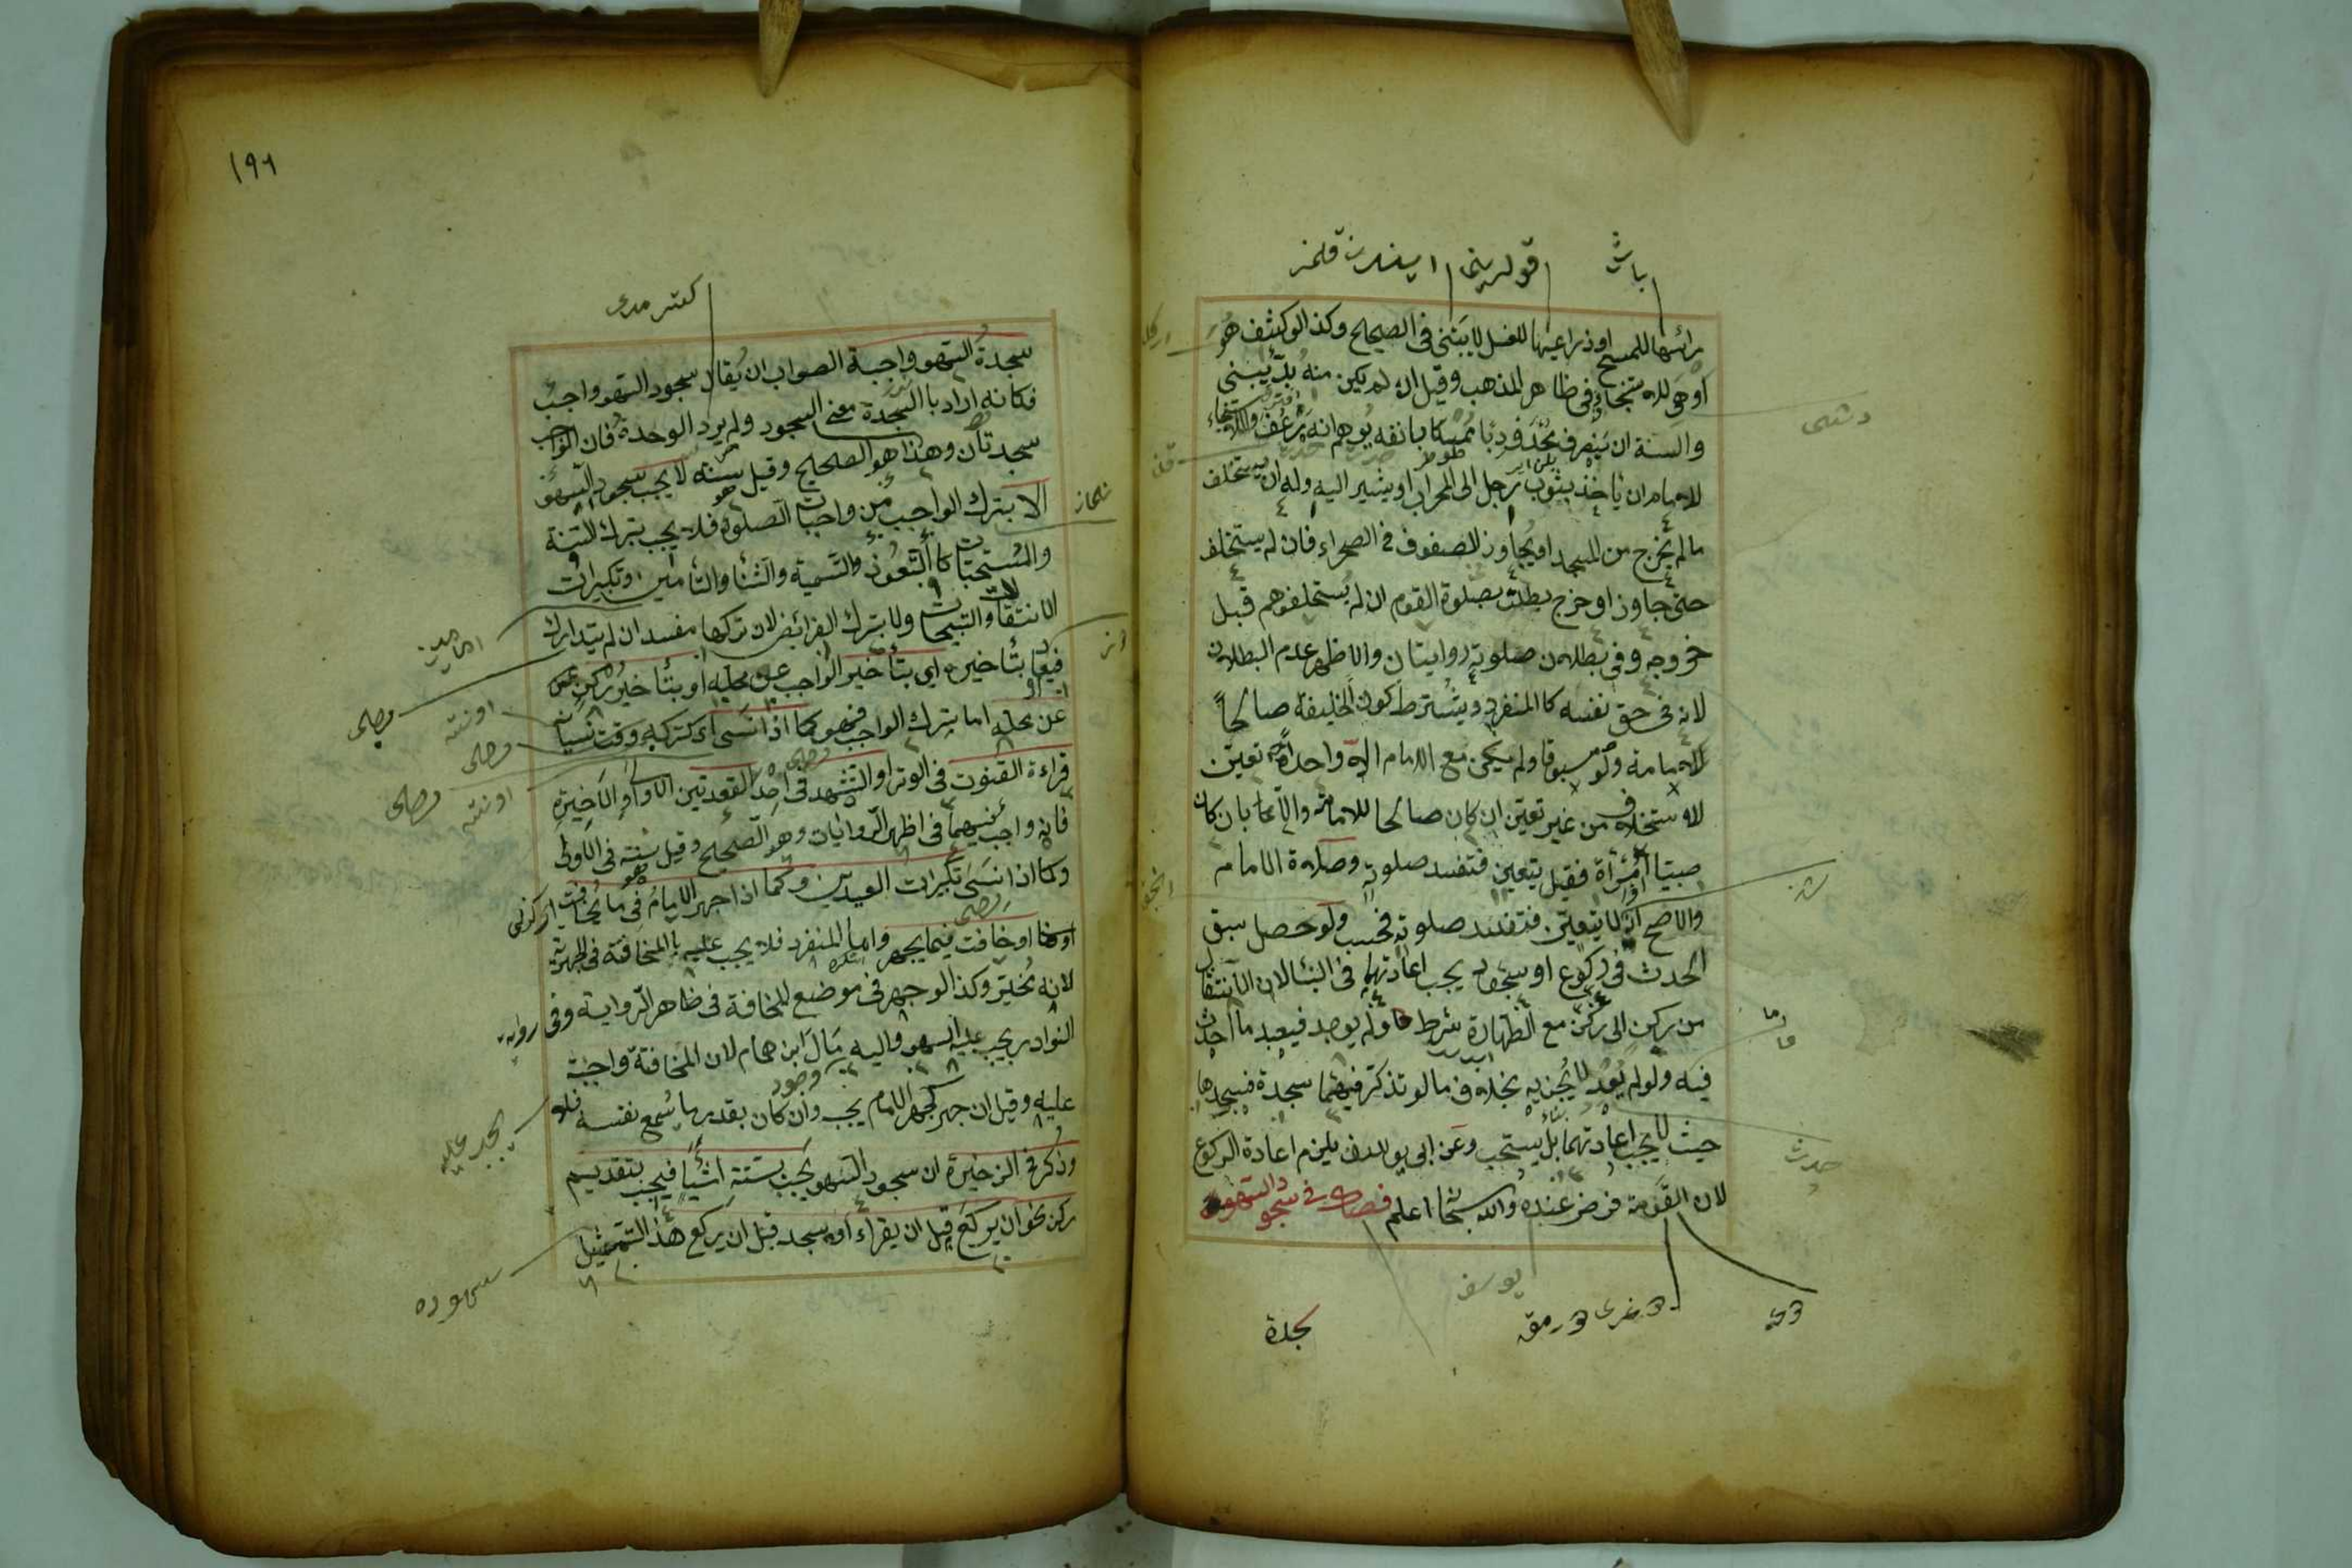 باش
قولرینی
رأسها للمسح او ذراعيها للغسل لا يبنى فى الصحيح وكذا لو كشف هو
او هى للاستنجاء فى ظاهر المذهب وقيل ان لم يكن منه بدّ يبنى
والسنة ان ينصرف محدودبا ممسكا بانفه يوهم انه رعف والاستنجاء
للامام ان ياخذ بثوب رجل الى المحراب او يشير اليه وله ان يستخلف
ما لم يخرج من المسجد او يجاوز الصفوف فى الصحراء فان لم يستخلف
حتى جاوز او خرج بطلت صلوة القوم ان لم يستخلفوهم قبل
خروجه وفى بطلان صلوته روايتان والاظهر عدم البطلان
لانه فى حق نفسه كالمنفرد ويشترط كون الخليفة صالحاً
للامامة ولو مسبوقا ولم يكن مع الامام الا واحد تعين
للاستخلاف من غير تعيّن ان كان صالحا للامامة والا بان كان
صبيّا او امرأة فقيل يتعين فتفسد صلوته وصلاة الامام
والاصح انه لا يتعيّن فتفسد صلوته فحسب ولو حصل سبق
الحدث فى ركوع او سجود يجب اعادتهما فى البنا لان الانتقال
من ركن الى ركن مع الطهارة شرط ولم يوجد فيعيد ما احدث
فيه ولو لم يعد لا يجزيه بخلاف ما لو تذكر فيهما سجدة فسجدها
حيث لا يجب اعادتهما بل يستحب وعن ابى يوسف يلزم اعادة الركوع
لان القومة فرض عنده والله سبحانه اعلم فصل فى سجود السهو
دشمسى
حدث
يوسف
سجدة
١٩٦
سجدة السهو واجبة الصواب ان يقال سجود السهو واجب
فكانه اراد بالسجدة معنى السجود ولم يرد الوحدة فان الواجب
سجدتان وهذا هو الصحيح وقيل سنة لا يجب سجود السهو
الا بترك الواجب من واجبات الصلوة فلا يجب بترك السنة
والمستحبات كالتعوّذ والتسمية والثناء والتأمين وتكبيرات
الانتقالات والتسبيحات ولا بترك الفرائض لان تركها مفسد ان لم يتدارك
فيها بتأخيره اى بتأخير الواجب عن محله او بتأخير ركن
عن محله اما بترك الواجب فهو كما اذا نسى
قراءة القنوت فى الوتر او التشهد فى احد القعدتين الاولى او الاخيرة
فانه واجب فيهما فى اظهر الروايات وهو الصحيح وقيل سنة فى الاولى
وكما اذا نسى تكبيرات العيدين وكما اذا جهر الامام فى ما يخافت
او خافت فيما يجهر واما المنفرد فلا يجب عليه بالمخافتة فى الجهرية
لانه مخيّر وكذا لو جهر فى موضع المخافة فى ظاهر الرواية وفى رواية
النوادر يجب عليه السهو واليه مال ابن همام لان المخافتة واجبة
عليه وقيل ان جهر كجهر الامام يجب وان كان بقدر ما يسمع نفسه فلا
وذكر فى الذخيرة ان سجود السهو يجب بستة اشيا فيجب بتقديم
ركن نحو ان يركع قبل ان يقراء او يسجد قبل ان يركع هذا التمثيل
نماز
يجب عليه